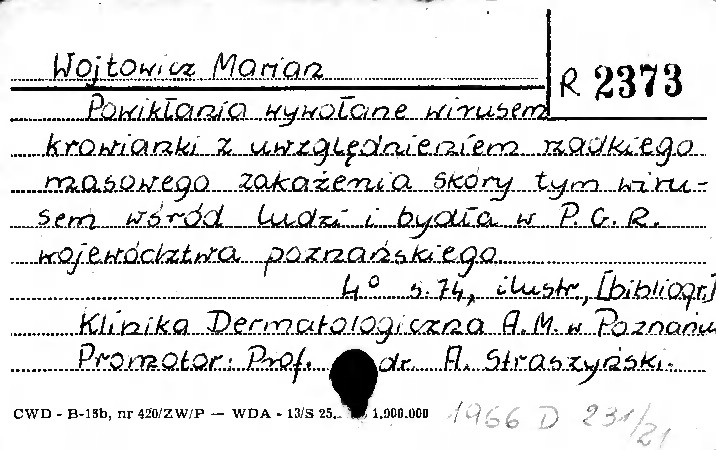 Wojtowicz Marian
R 2373
Powikłania wywołane wirusem
krowianki z uwzględnieniem rzadkiego
masowego zakażenia skóry tym wiru-
sem wśród ludzi i bydła w P.G.R.
województwa poznańskiego
4° s. 74, ilustr., [bibliogr.]
Klinika Dermatologiczna A.M. w Poznaniu
Promotor: Prof. dr. A. Straszyński.
CWD - B-18b, nr 420/ZW/P — WDA - 13/S 25, 1.000.000
1966 D 231/21